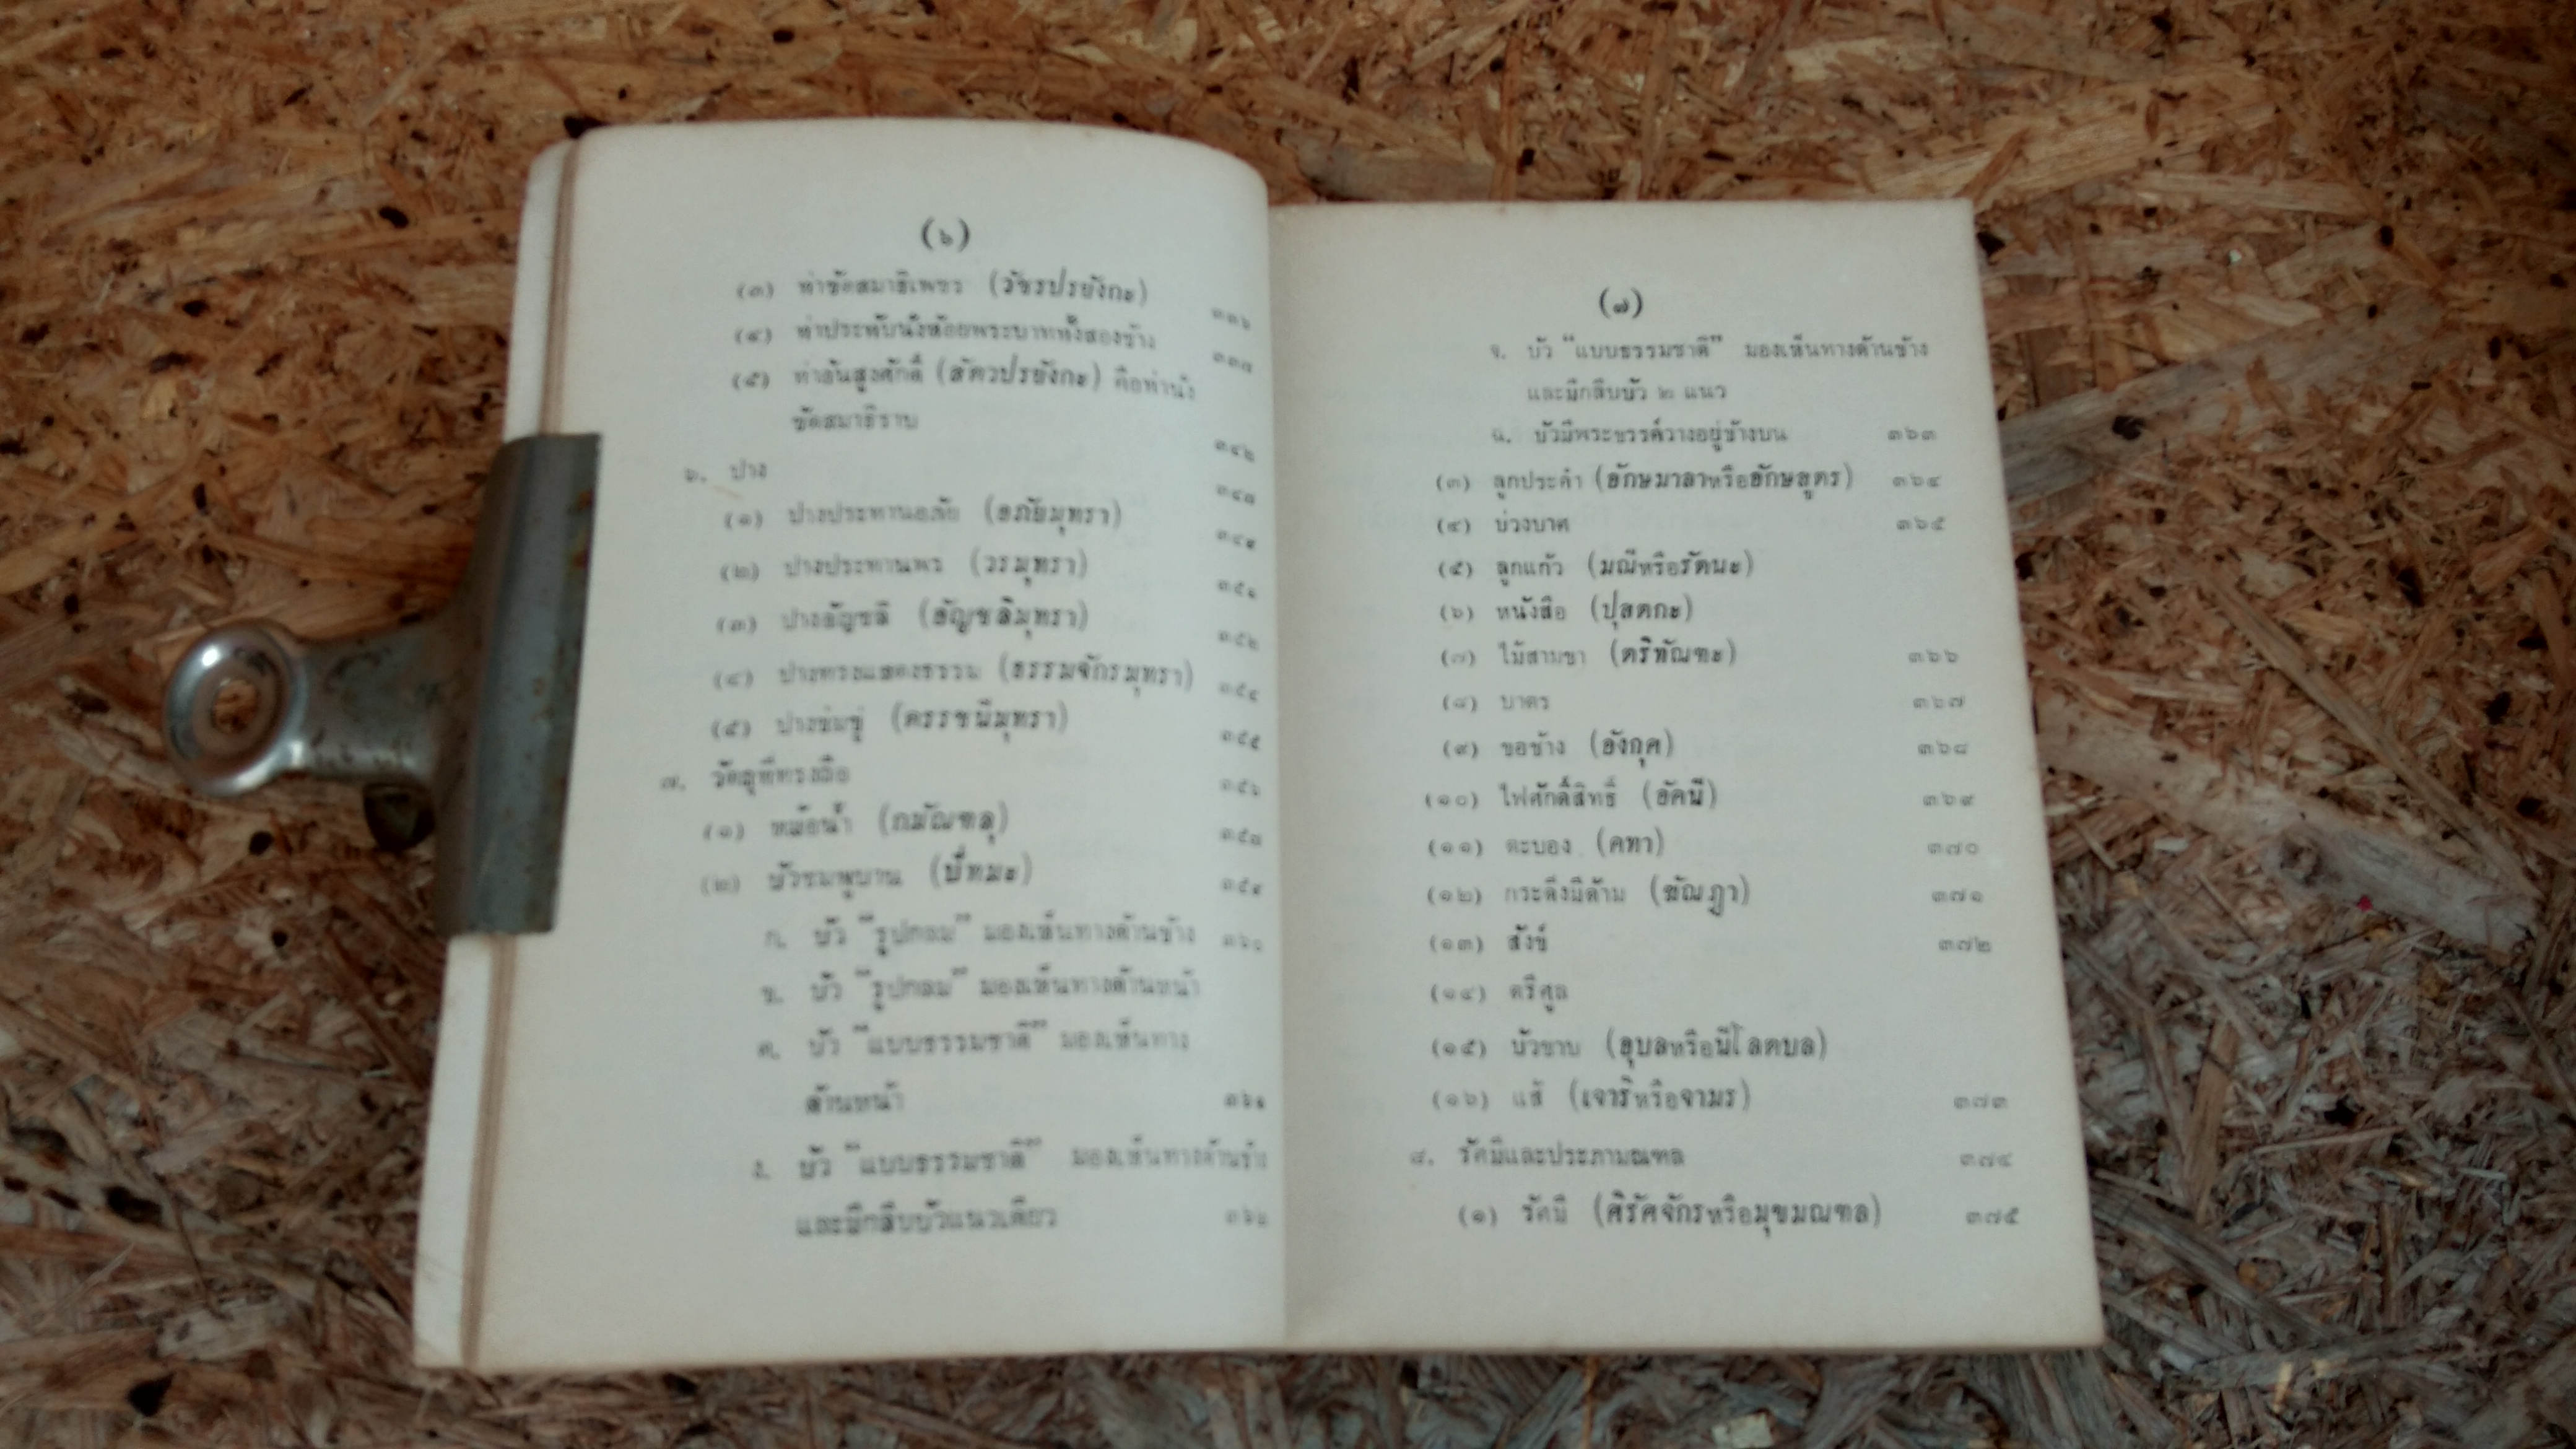 (๖)
(๓) ท่าขัดสมาธิเพชร (วัชรปรยังกะ) ๓๓๖
(๔) ท่าประทับนั่งห้อยพระบาททั้งสองข้าง ๓๓๗
(๕) ท่าอันสูงศักดิ์ (สัตวปรยังกะ) คือท่านั่ง
ขัดสมาธิราบ ๓๔๒
๖. ปาง ๓๔๘
(๑) ปางประทานอภัย (อภัยมุทรา) ๓๔๙
(๒) ปางประทานพร (วรมุทรา) ๓๕๑
(๓) ปางอัญชลี (อัญชลิมุทรา) ๓๕๒
(๔) ปางทรงแสดงธรรม (ธรรมจักรมุทรา) ๓๕๔
(๕) ปางข่มขู่ (ดรรชนีมุทรา) ๓๕๕
๗. วัตถุที่ทรงถือ ๓๕๖
(๑) หม้อน้ำ (กมัณฑลุ) ๓๕๘
(๒) บัวชมพูบาน (ปัทมะ) ๓๕๙
ก. บัว "รูปกลม" มองเห็นทางด้านข้าง ๓๖๐
ข. บัว "รูปกลม" มองเห็นทางด้านหน้า
ค. บัว "แบบธรรมชาติ" มองเห็นทาง
ด้านหน้า ๓๖๑
ง. บัว "แบบธรรมชาติ" มองเห็นทางด้านข้าง
และมีกลีบบัวแนวเดียว ๓๖๒
(๗)
จ. บัว "แบบธรรมชาติ" มองเห็นทางด้านข้าง
และมีกลีบบัว ๒ แนว
ฉ. บัวมีพระขรรค์วางอยู่ข้างบน ๓๖๓
(๓) ลูกประคำ (อักษมาลาหรืออักษสูตร) ๓๖๔
(๔) บ่วงบาศ ๓๖๕
(๕) ลูกแก้ว (มณีหรือรัตนะ)
(๖) หนังสือ (ปุสตกะ)
(๗) ไม้สามขา (ตริทัณฑะ) ๓๖๖
(๘) บาตร ๓๖๗
(๙) ขอช้าง (อังกุศ) ๓๖๘
(๑๐) ไฟศักดิ์สิทธิ์ (อัคนี) ๓๖๙
(๑๑) ตะบอง (คทา) ๓๗๐
(๑๒) กระดิ่งมีด้าม (ฆัณฏา) ๓๗๑
(๑๓) สังข์ ๓๗๒
(๑๔) ตรีศูล
(๑๕) บัวขาบ (อุบลหรือนีโลตบล)
(๑๖) แส้ (เจารีหรือจามร) ๓๗๓
๘. รัศมีและประภามณฑล ๓๗๔
(๑) รัศมี (ศิรัศจักรหรือมุขมณฑล) ๓๗๕